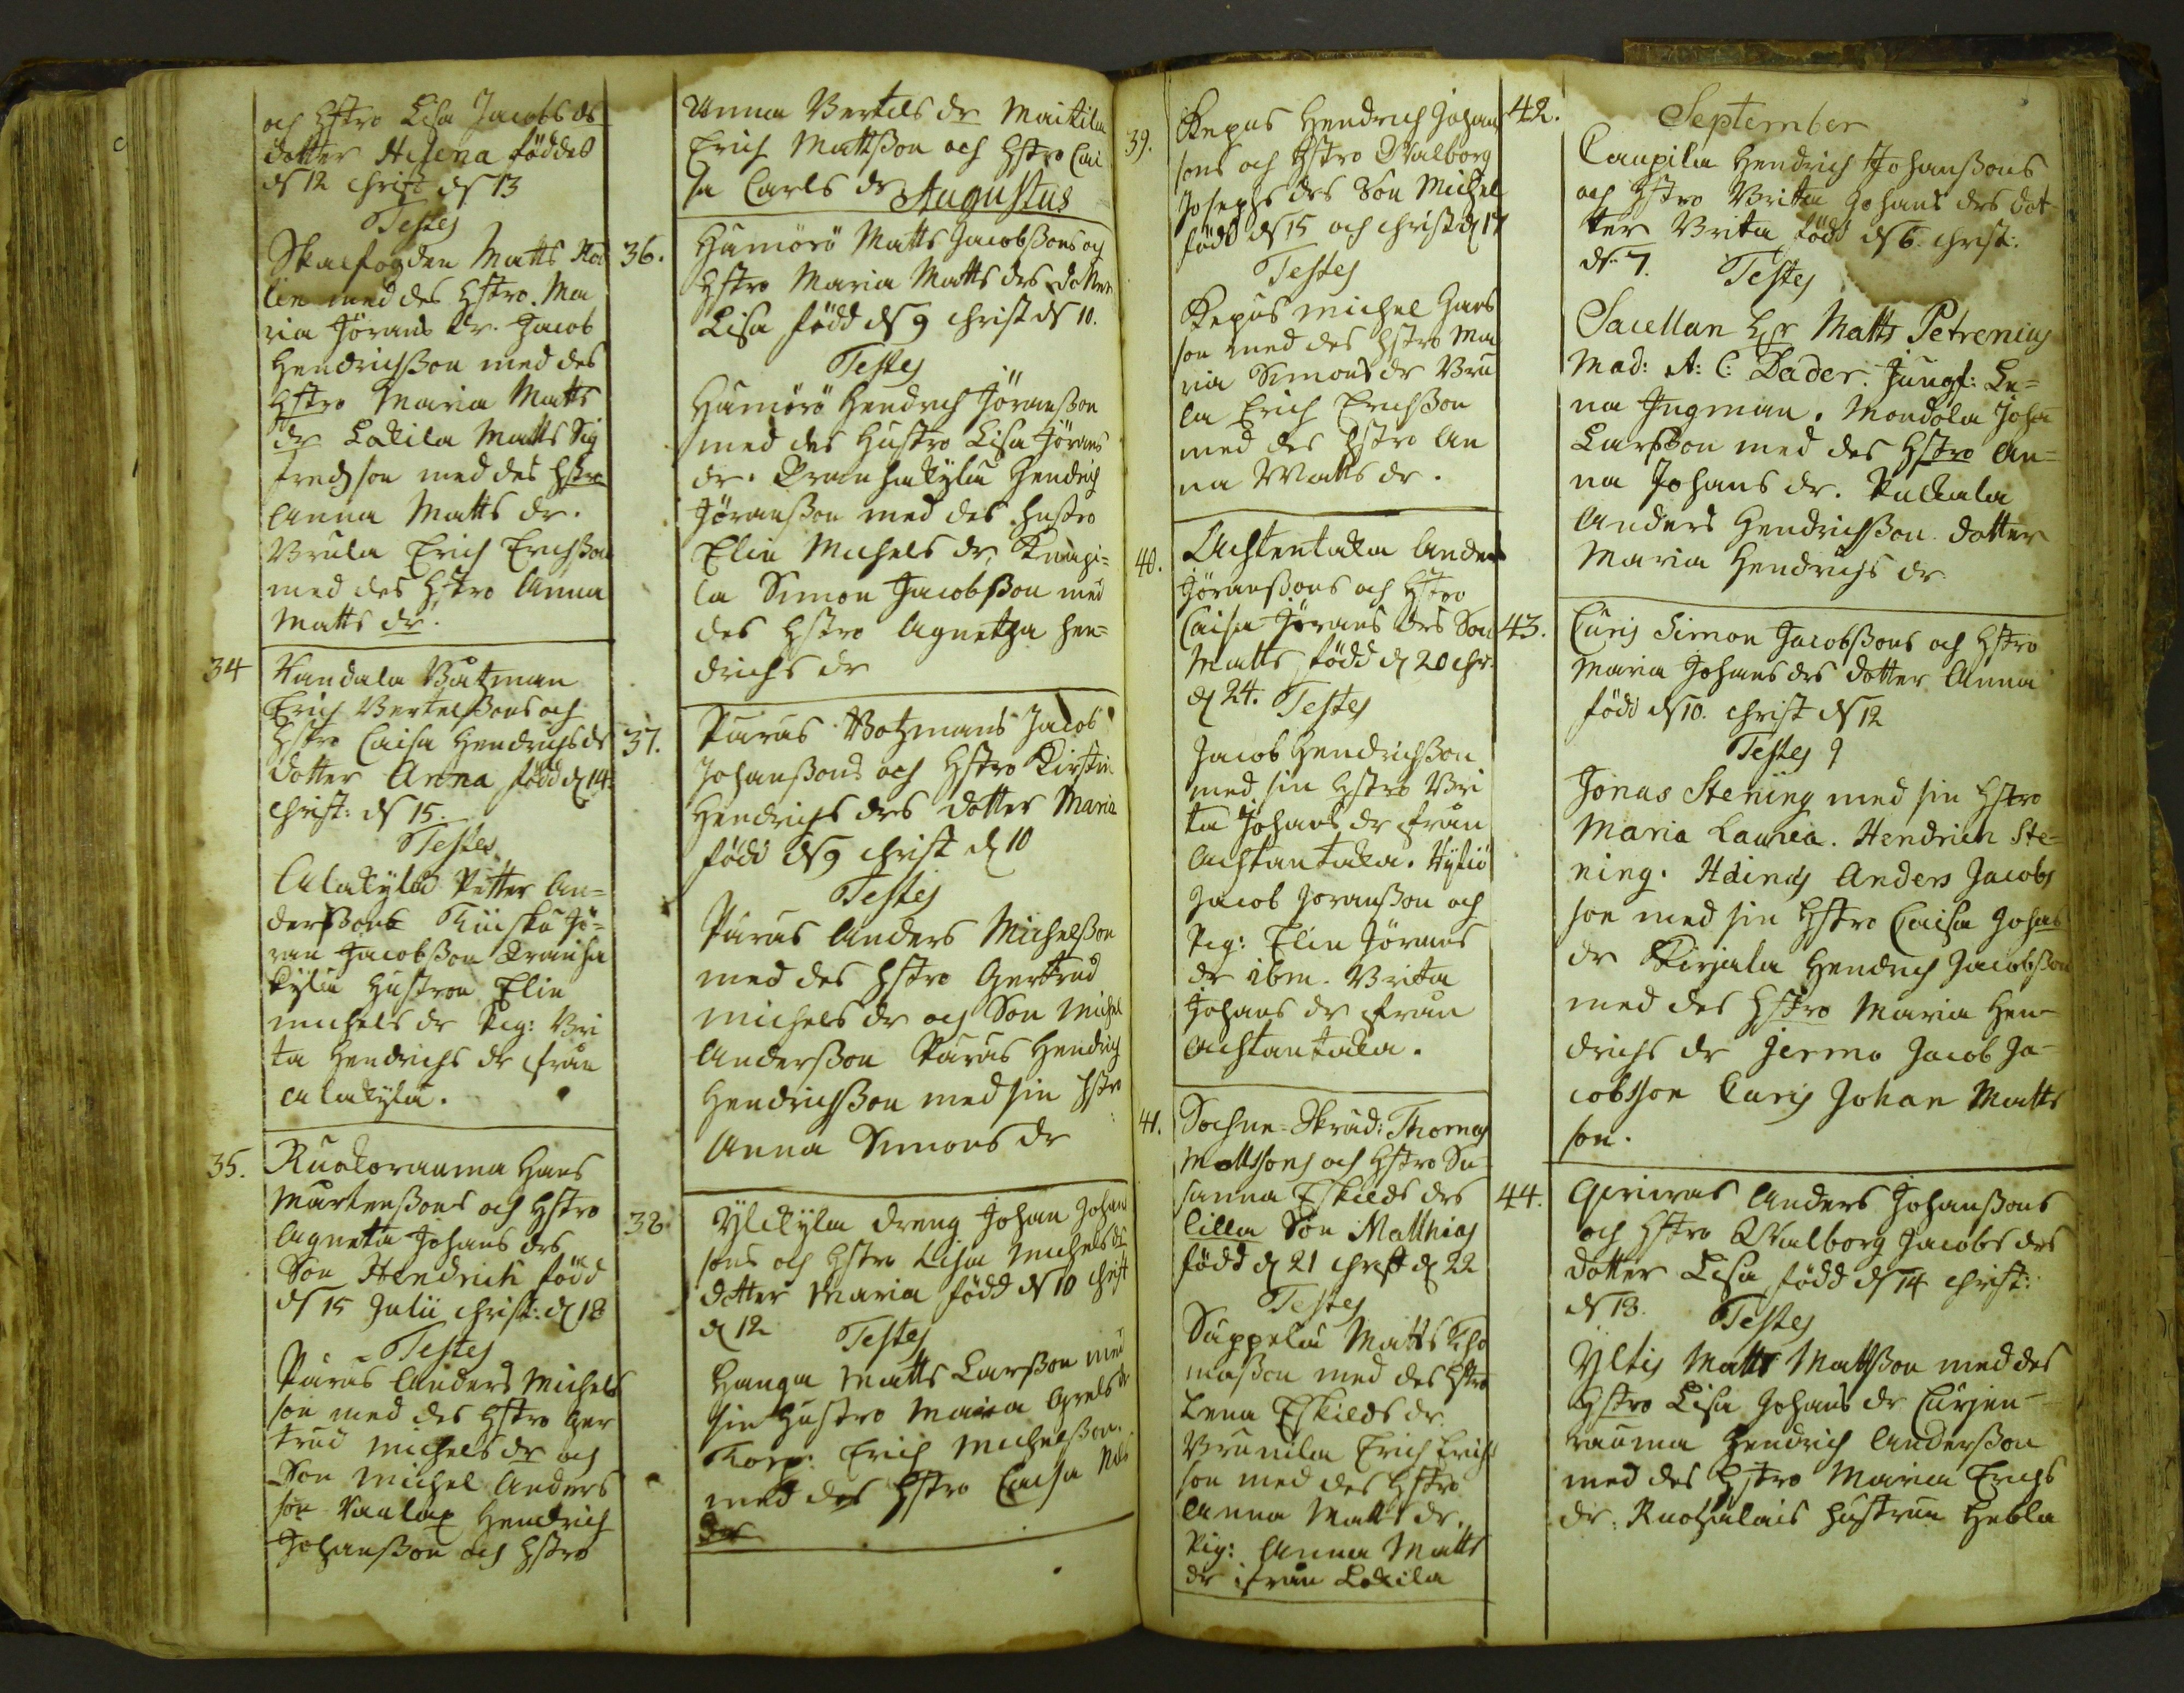 och Hstro Lisa Jacobs ds
dotter Helena föddes
d 12 christ d 13
Testes
Skalfogden Matts Nol
lin med des Hstro. Ma
ria Jörans dr. Jacob
Hendrichsson med des
Hstro Maria Matts
dr Lokila Matts Sig
fredson med des Hstro
Anna Matts dr.
Brula Erich Erichsson
med des Hstro Anna
Matts dr.
34 Kandala Båtzman
Erich Bertelssons och
Hstro Caisa Hendrichs ds
dotter Anna född d 14.
Christ: d 15.
Testes
Alakylä Petter An=
derssons Kiisku Jö=
ran Jacobsson Kranha
kylä Hustron Elin
michels dr Pig: Bri
ta Hendrichs dr från
Alakylä.
35. Ruokorauma Hans
Mårtenssons och Hstro
Agneta Johans drs
Son Hendrich född
d 15 Julii christ: d 18
Testes
Påras Anders Michels
son med des Hstro Ger
trud Michels dr och
Son Michel Anders
son Hendrich
Johansson och Hstro
Anna Bertels dr Maikila
Erich Mattsson och Hstro Cai
sa Carls dr Augustus
36. Hämörö Matts Jacobssons och
Hstro Maria Matts drs dotter
Lisa född d 9 christ d 10.
Testes
Hämörö Hendrich Jöransson
med des Hustro Lisa Jörans
dr. Kranhakylä Hendrich
Jöransson med des Hustro
Elin Michels dr, Knaapi=
la Simon Jacobsson med
des Hstro Agnetha Hen=
drichs dr
37. Påras Botzmans Jacob
Johanssons och Hstro Kirstin
Hendrichs drs dotter Maria
född d 9 christ d 10
Testes
Påras Anders Michelsson
med des Hstro Gertrud
michels dr och Son Michel
Andersson Påras Hendrich
Hendrichsson med sin Hstro
Anna Simons dr
38. Ylikylä dreng Johan Johans
sons och Hstro Lisa Michels ds
dotter Maria född d 10 christ
d 12 Testes
Hanga Matts Larsson med
sin Hustro Maria Grels dr
Korp: Erich Michelsson
med des Hstro Caisa Nils
dr
39. Repas Hendrich Johans
sons och Hstro Walborg
Josephs drs Son Michel
född d 15 och christ d 17
Testes
Repas Michel Hans
son med des Hstro Ma
ria Simons dr Bru
la Erich Erichsson
med des Hstro An
na Matts dr.
40. Achtentaka Anders
Jöranssons och Hstro
Caisa Jörans drs Son
Matts född d 20 chr:
d 24. Testes
Jacob Hendrichsson
med sin Hstro Bri
ta Johans dr från
Achtantaka.
Jacob Joransson och
Pig: Elin Jörans
dr ibm. Brita
Johans dr från
Achtantaka.
41. Sochne-Skräd: Thomas
Mattssons och Hstro Su
sanna Eskilds drs
lilla Son Matthias
född d 21 christ d 22
Testes
Suppela Matts Tho
masson med des Hstro
Lena Eskilds dr.
Brunila Erich Erich
son med des Hstro
Anna Matts dr.
Pig: Anna Matts
dr ifrån Lokila
42. September
Caupila Hendrich Johanssons
och Hstro Britta Johans drs dot
ter Brita född d 6. christ:
d. 7. Testes
Sacellan Hr Matts Petrenius
Mad: A: C: Bader. Jungf: Le=
na Ingman. Mondola Joha
Larsson med des Hstro An=
na Johans dr. Packala
Anders Hendrichsson dotter
Maria Hendrichs dr
43. Curis Simon Jacobssons och Hstro
Maria Johans drs dotter Anna
född d 10. christ d 12
Testes
Jonas Stening med sin Hstro
Maria Lauraea. Hendrich Ste=
ning. Heinis Anders Jacobs
son med sin Hstro Caisa Johans
dr Kirjala Hendrich Jacobsson
med des Hstro Maria Hen=
drichs dr Jermo Jacob Ja=
cobsson Curis Johan Matts
son.
44. Gerivas Anders Johanssons
och Hstro Walborg Jacobs drs
dotter Lisa född d 14 christ:
d 18. Testes
Yltis Matts Mattsson med des
Hstro Lisa Johans dr Curjen=
rauma Hendrich Andersson
med des Hstro Maria Erichs
dr: Hustrun Hebla